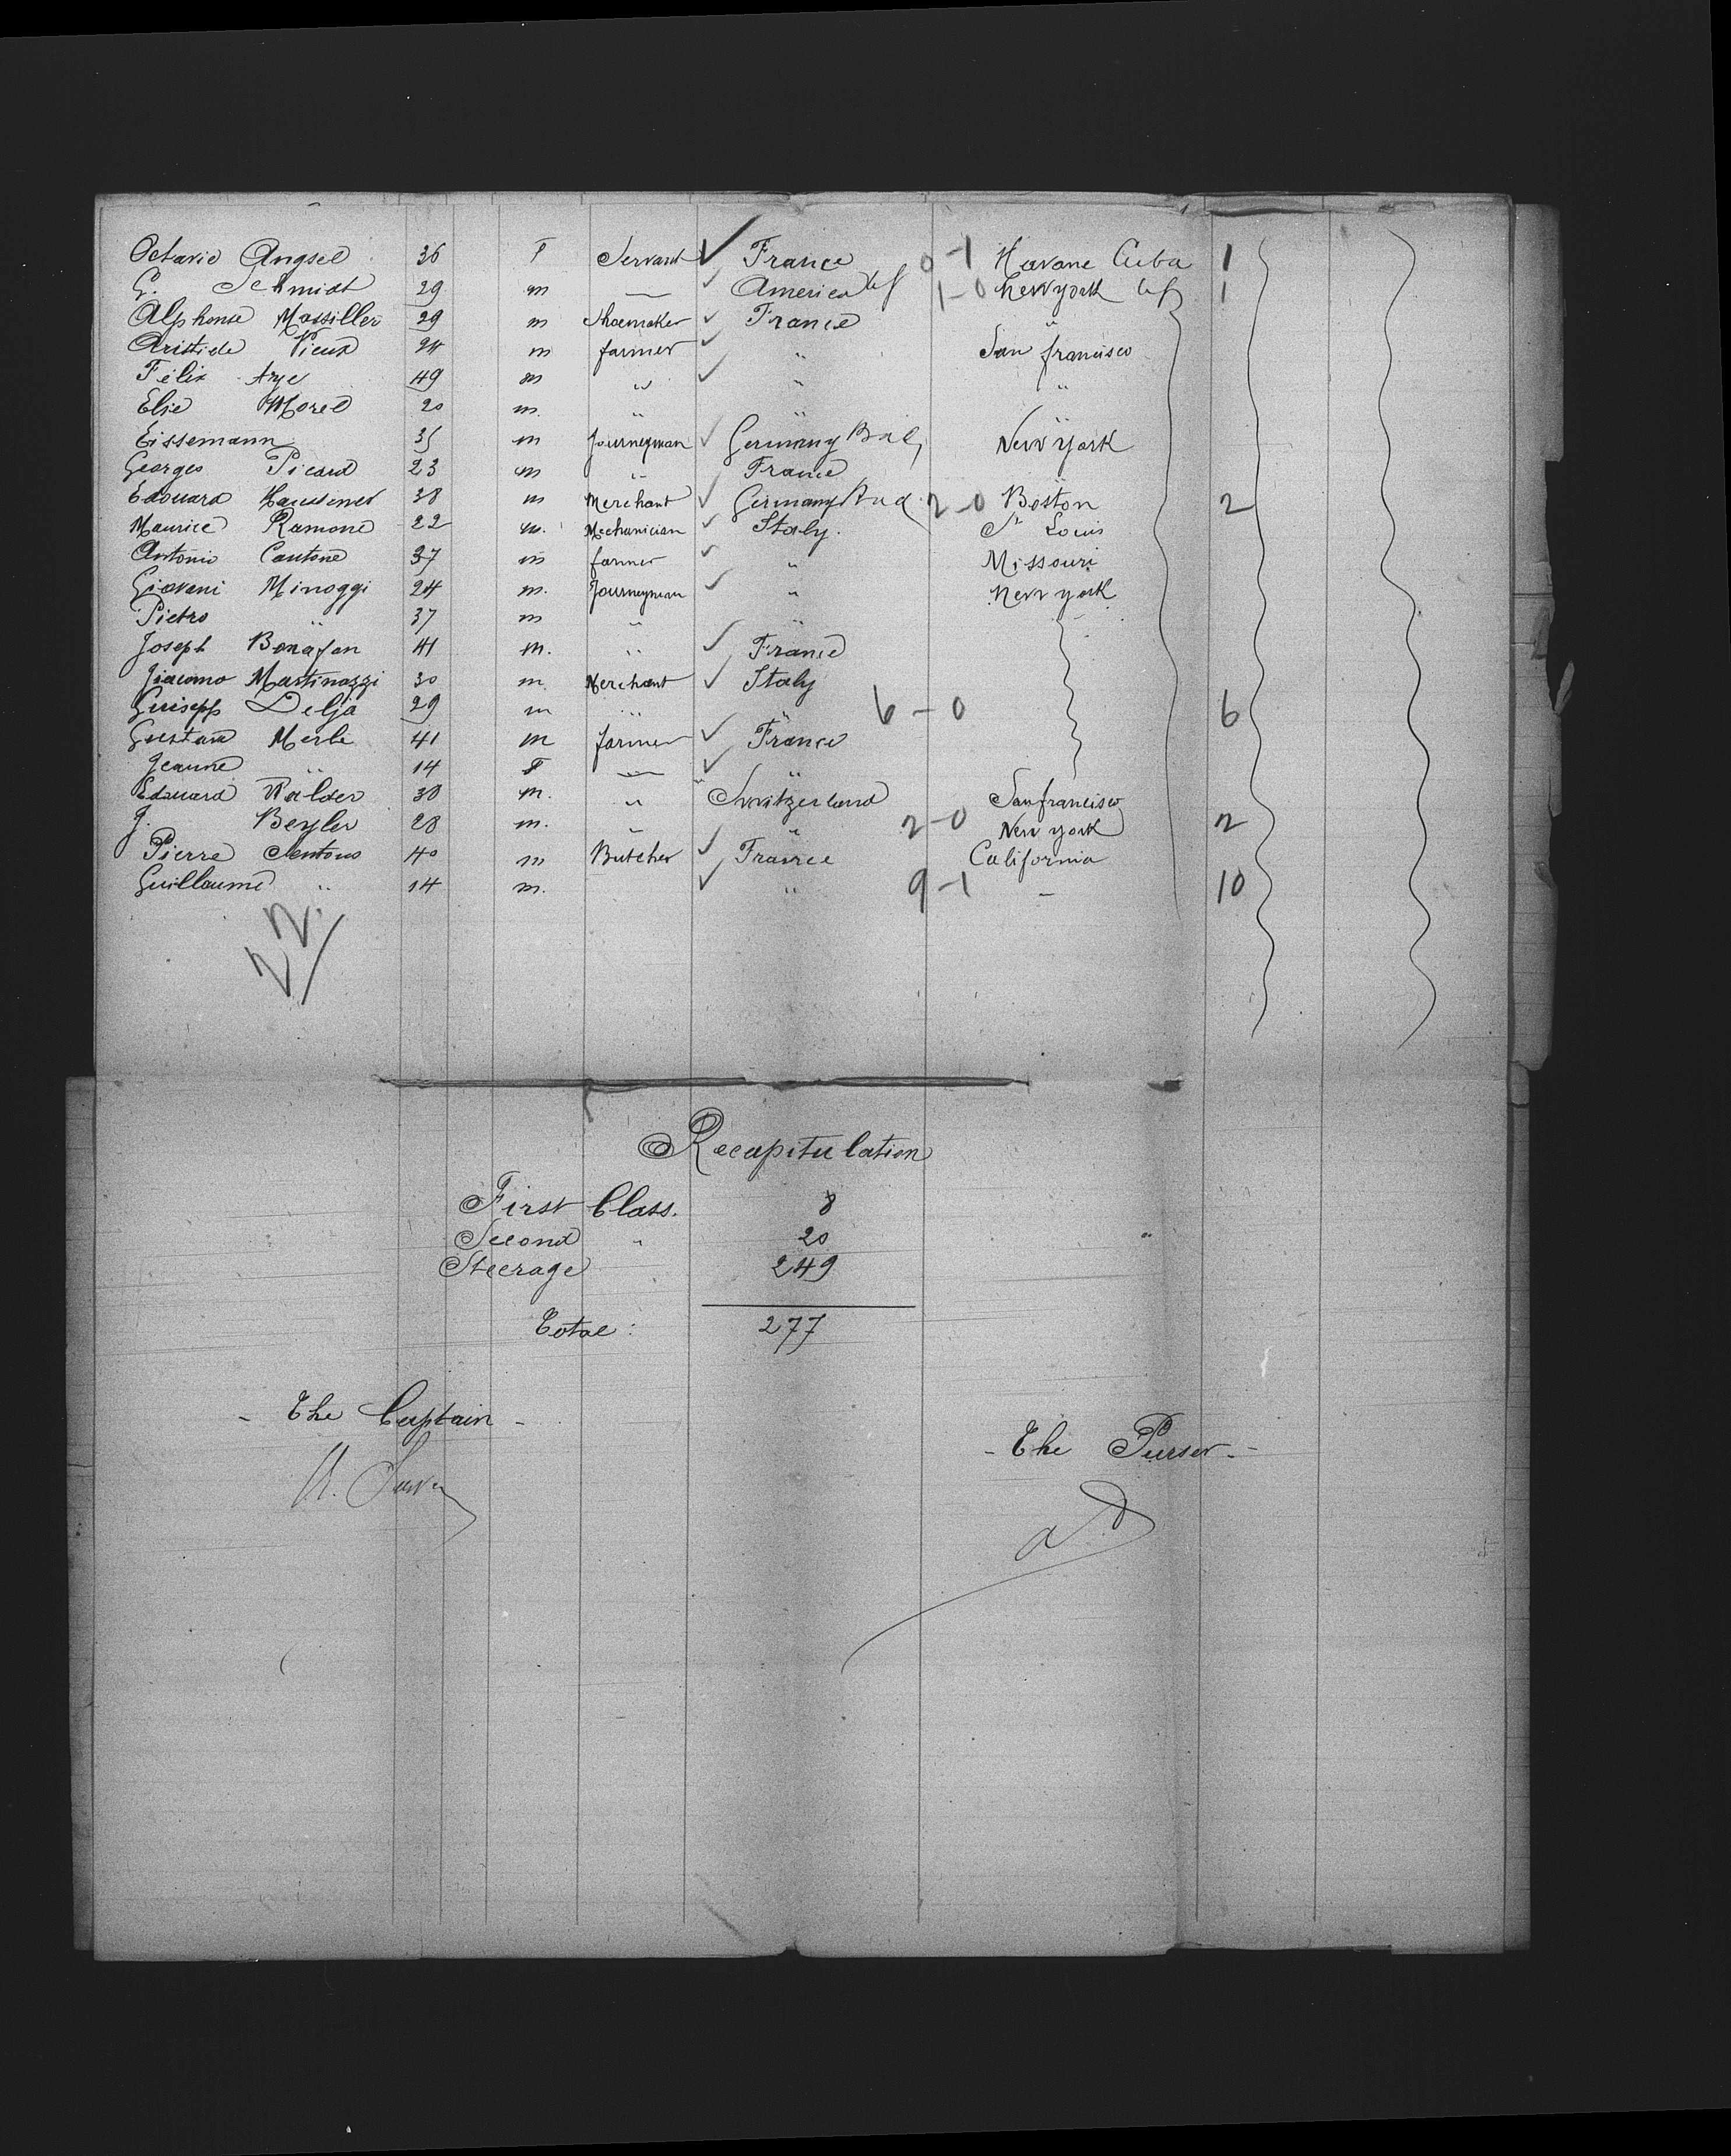 Octavie Angsel 36 F Servant France 0-1 Havane Cuba 1
G. Schmidt 29 m — America 1-0 New york 1
Alphonse Massiller 29 m Shoemaker France "
Aristide Vieux 24 m farmer " San francisco
Félix Arye 49 m " " "
Elie Morel 20 m. " " "
Eissemann 35 m Journeyman Germany New York
Georges Picard 23 m " France "
Edouard Haussener 38 m Merchant Germany 2-0 Boston 2
Maurice Ramone 22 m. Mechanician Italy. St Louis
Antonio Cantone 37 m farmer " Missouri
Giovani Minoggi 24 m. Journeyman " New york
Pietro " 37 m " "
Joseph Bonafon 41 m. " France
Giacomo Martinazzi 30 m Merchant Italy
Guisepp Delja 29 m " " 6-0 6
Gustave Merle 41 m farmer France
Jeanne " 14 F — "
Edouard Walder 38 m. " Switzerland San francisco
J. Beyler 28 m. " " 2-0 New york 2
Pierre Sentous 40 m Butcher France California
Guillaume " 14 m. " 9-1 - 10
22
Recapitulation
First Class. 8
Second " 20
Steerage 249
Total: 277
- The Captain -
- The Purser -